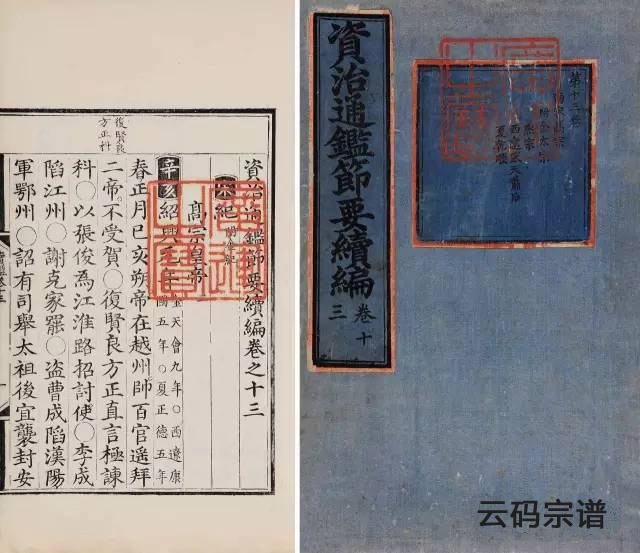 復賢良
方正科
資治通鑑節要續編卷之十三
宋紀
高宗皇帝
辛亥紹興元年
金天會九年〇西遼康
國五年〇夏正德五年
春正月己亥朔帝在越州帥百官遥拜
二帝不受賀〇復賢良方正直言極諫
科〇以張俊為江淮路招討使〇李成
陷江州〇謝克家罷〇盗曹成陷漢陽
軍鄂州〇詔有司舉太祖後宜襲封安
資治通鑑節要續編
卷十
三
第十三卷
南宋高宗
附金太宗
熙宗
夏乾順
云码宗谱